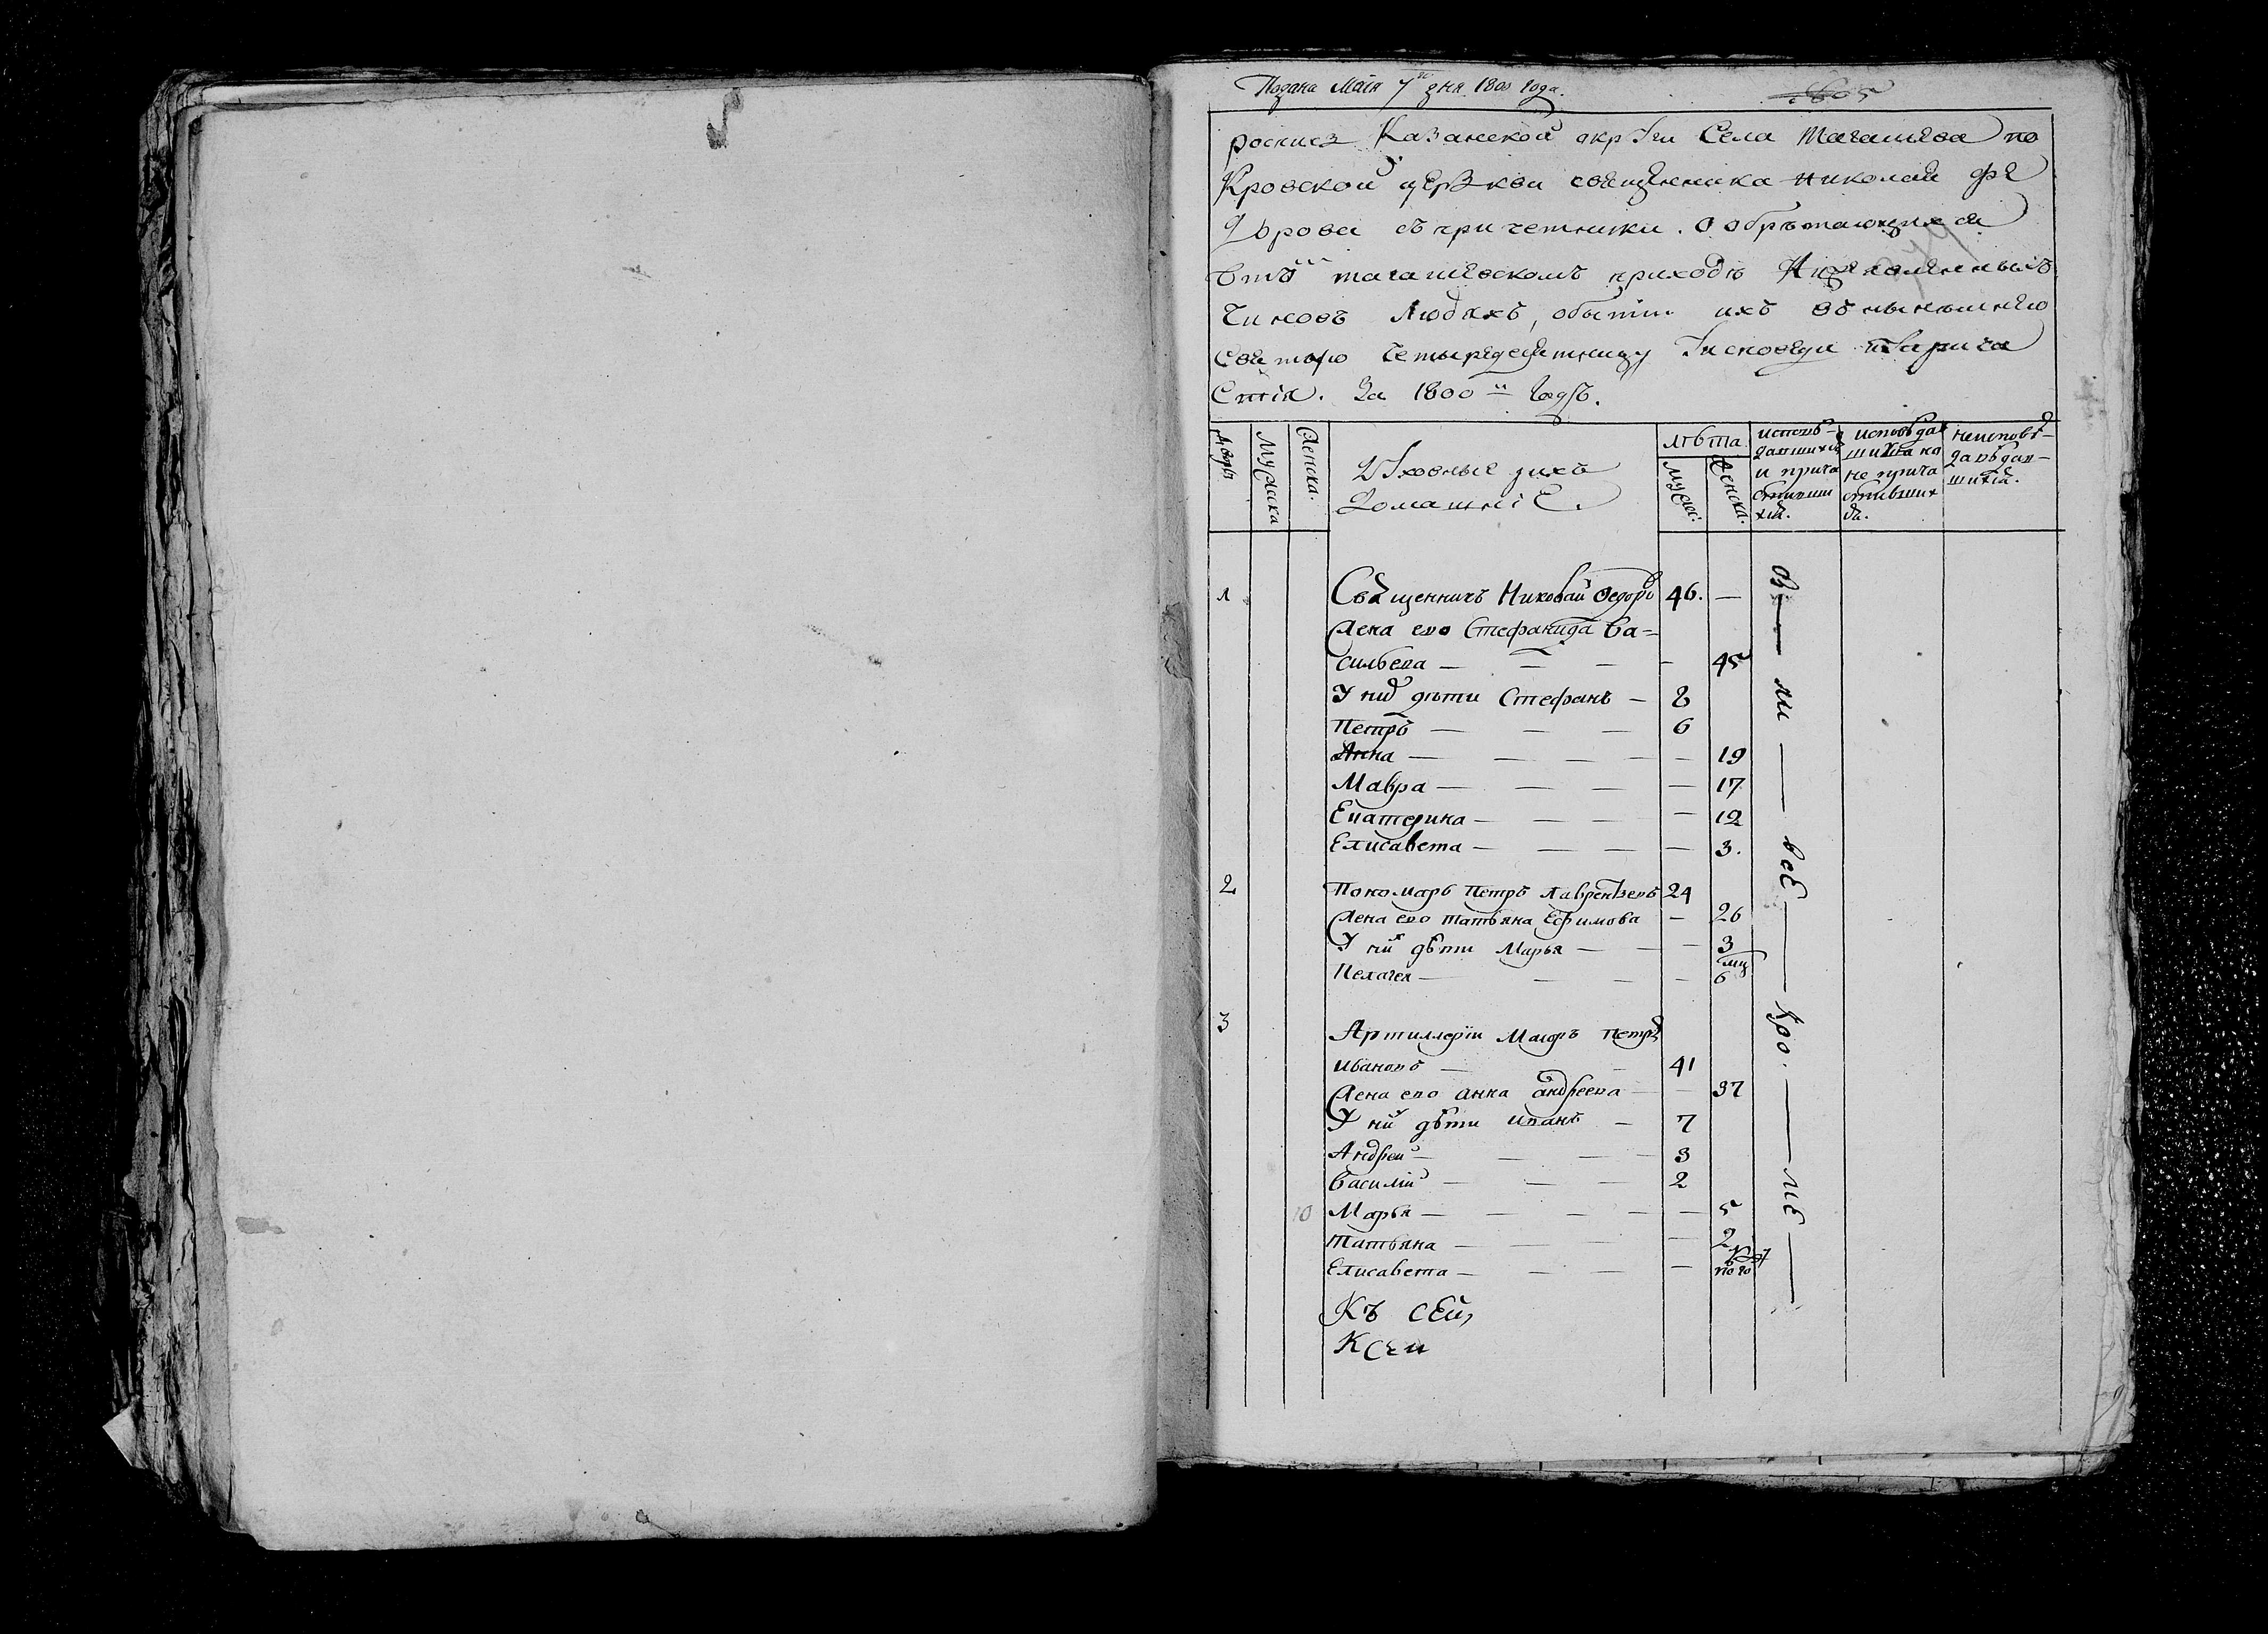 Подана Маія 7го дня 1800 года.
1805
роспись Казанской округи Села тагашева по
Кровской церькви священника николая фе
Дорова съ причетники. О обрѣтающихся
втомъ тагашевскомъ приходѣ
Чиновъ людяхъ, обытіи ихъ въ нынешнею
Святую Четыредесятницу Исповеди
Стія. За 1800й годъ.
Дворы
Мужска
Женска.
Духовные и ихъ
Домашніе.
лѣта
Мужес:
Женска.
исповѣ-
давшихся
и прича
стивши
хся.
исповѣдав
шихся но
не прича
стивших
ся.
неисповѣ-
давшихся.
1 Священникъ Николай Федоров 46. —
Жена ево Стефанида Ва=
сильева — 45
У них дѣти Стефанъ — 8
Петръ — 6
Анна — 19
Мавра — 17
Екатерина — 12
Елисавета — 3.
2 Пономарь Петръ Лаврентьевъ 24
Жена ево татьяна Ефимова — 26
У них дѣти Марья — 3
Пелагея — мц 6
3 Артиллеріи Маіоръ Петръ
Ивановъ — 41
Жена ево анна андреева — 37
У них дѣти иванъ — 7
Андрей — 3
Василій — 2
10 Марья — 5
татьяна — 2
Елисавета —
Къ сей,
Ксеи
бы — ли — всѣ — Кро. — мѣ —